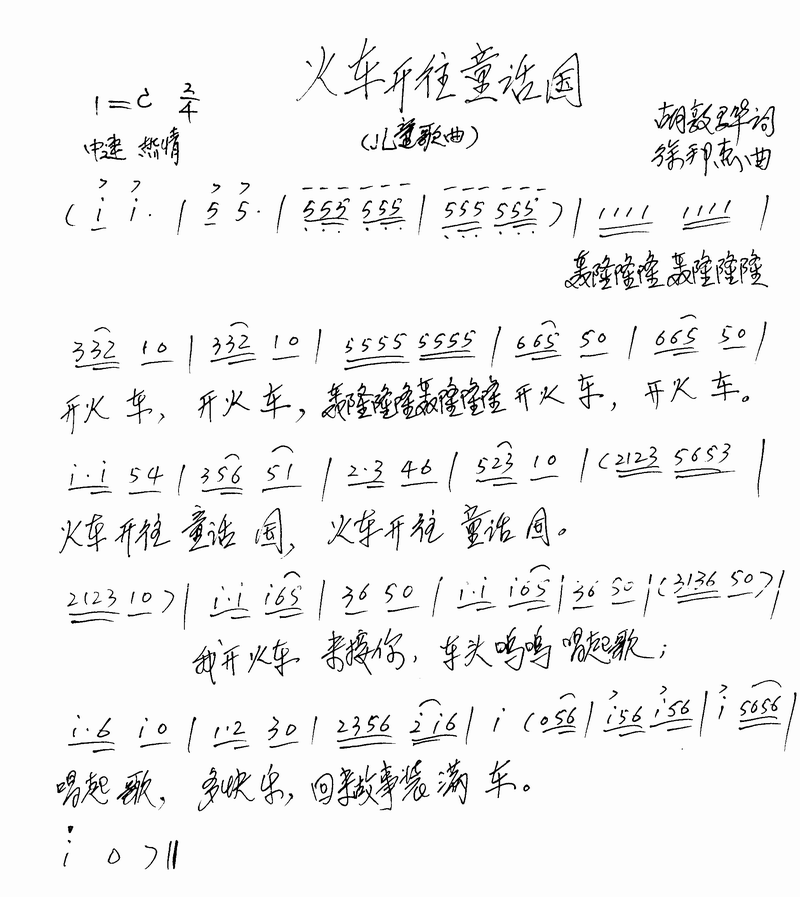 火车开往童话国
1=C 2/4
(儿童歌曲)
中速 热情
胡敦骅词
徐邦杰曲
( i i· | 5 5· | 555 555 | 555 555 ) | 1111 1111 |
轰隆隆隆 轰隆隆隆
332 10 | 332 10 | 5555 5555 | 665 50 | 665 50 |
开火 车, 开火 车, 轰隆隆隆轰隆隆隆 开火 车, 开火 车。
i·i 54 | 356 51 | 2·3 46 | 523 10 | (2123 5653 |
火车 开往 童话 国, 火车 开往 童话 国。
2123 10 ) | i·i i65 | 36 50 | i·i i65 | 36 50 | (3136 50 ) |
我开火车 来接你, 车头呜呜 唱起歌;
i·6 i0 | 1·2 30 | 2356 2i6 | i (056 | i56 i56 | i 5656 |
唱起 歌, 多快 乐, 回来故事装 满 车。
i 0 ) ||